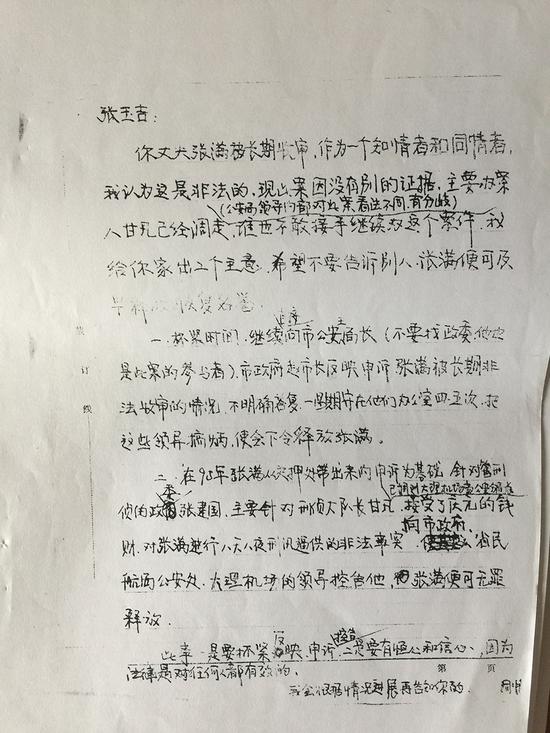 张玉吉：
你丈夫张满被长期收审，作为一个知情者和同情者，
我认为这是非法的，现此案因没有别的证据，主要办案
（公安局领导内部对此案看法不同有分歧）
人甘凡已经调走，谁也不敢接手继续办这个案件，我
给你家出二个主意，希望不要告诉别人，张满便可及
早释放恢复名誉。
一、抓紧时间，继续向市公安局长（不要找政委，他也
是此案的参与者）、市政府赵市长反映申诉张满被长期非
法收审的情况，不明确答复，一星期守在他们办公室四五次，把
这些领导搞烦，便会下令释放张满。
二、在94年张满从关押处带出来的申诉为基础，针对管刑
已调到大理机场当公安领导
侦的政委张建国，主要针对刑侦大队长甘凡，接受了庆元的钱
向市政府、
财，对张满进行八天八夜刑讯逼供的非法事实，省民
航局公安处、大理机场的领导控告他，张满便可无罪
释放。
此事一是要抓紧反映、申诉、控告，二是要有恒心和信心，因为
法律是对任何人都有效的。
第 页
我会根据情况进展再告知你的。
装
订
线